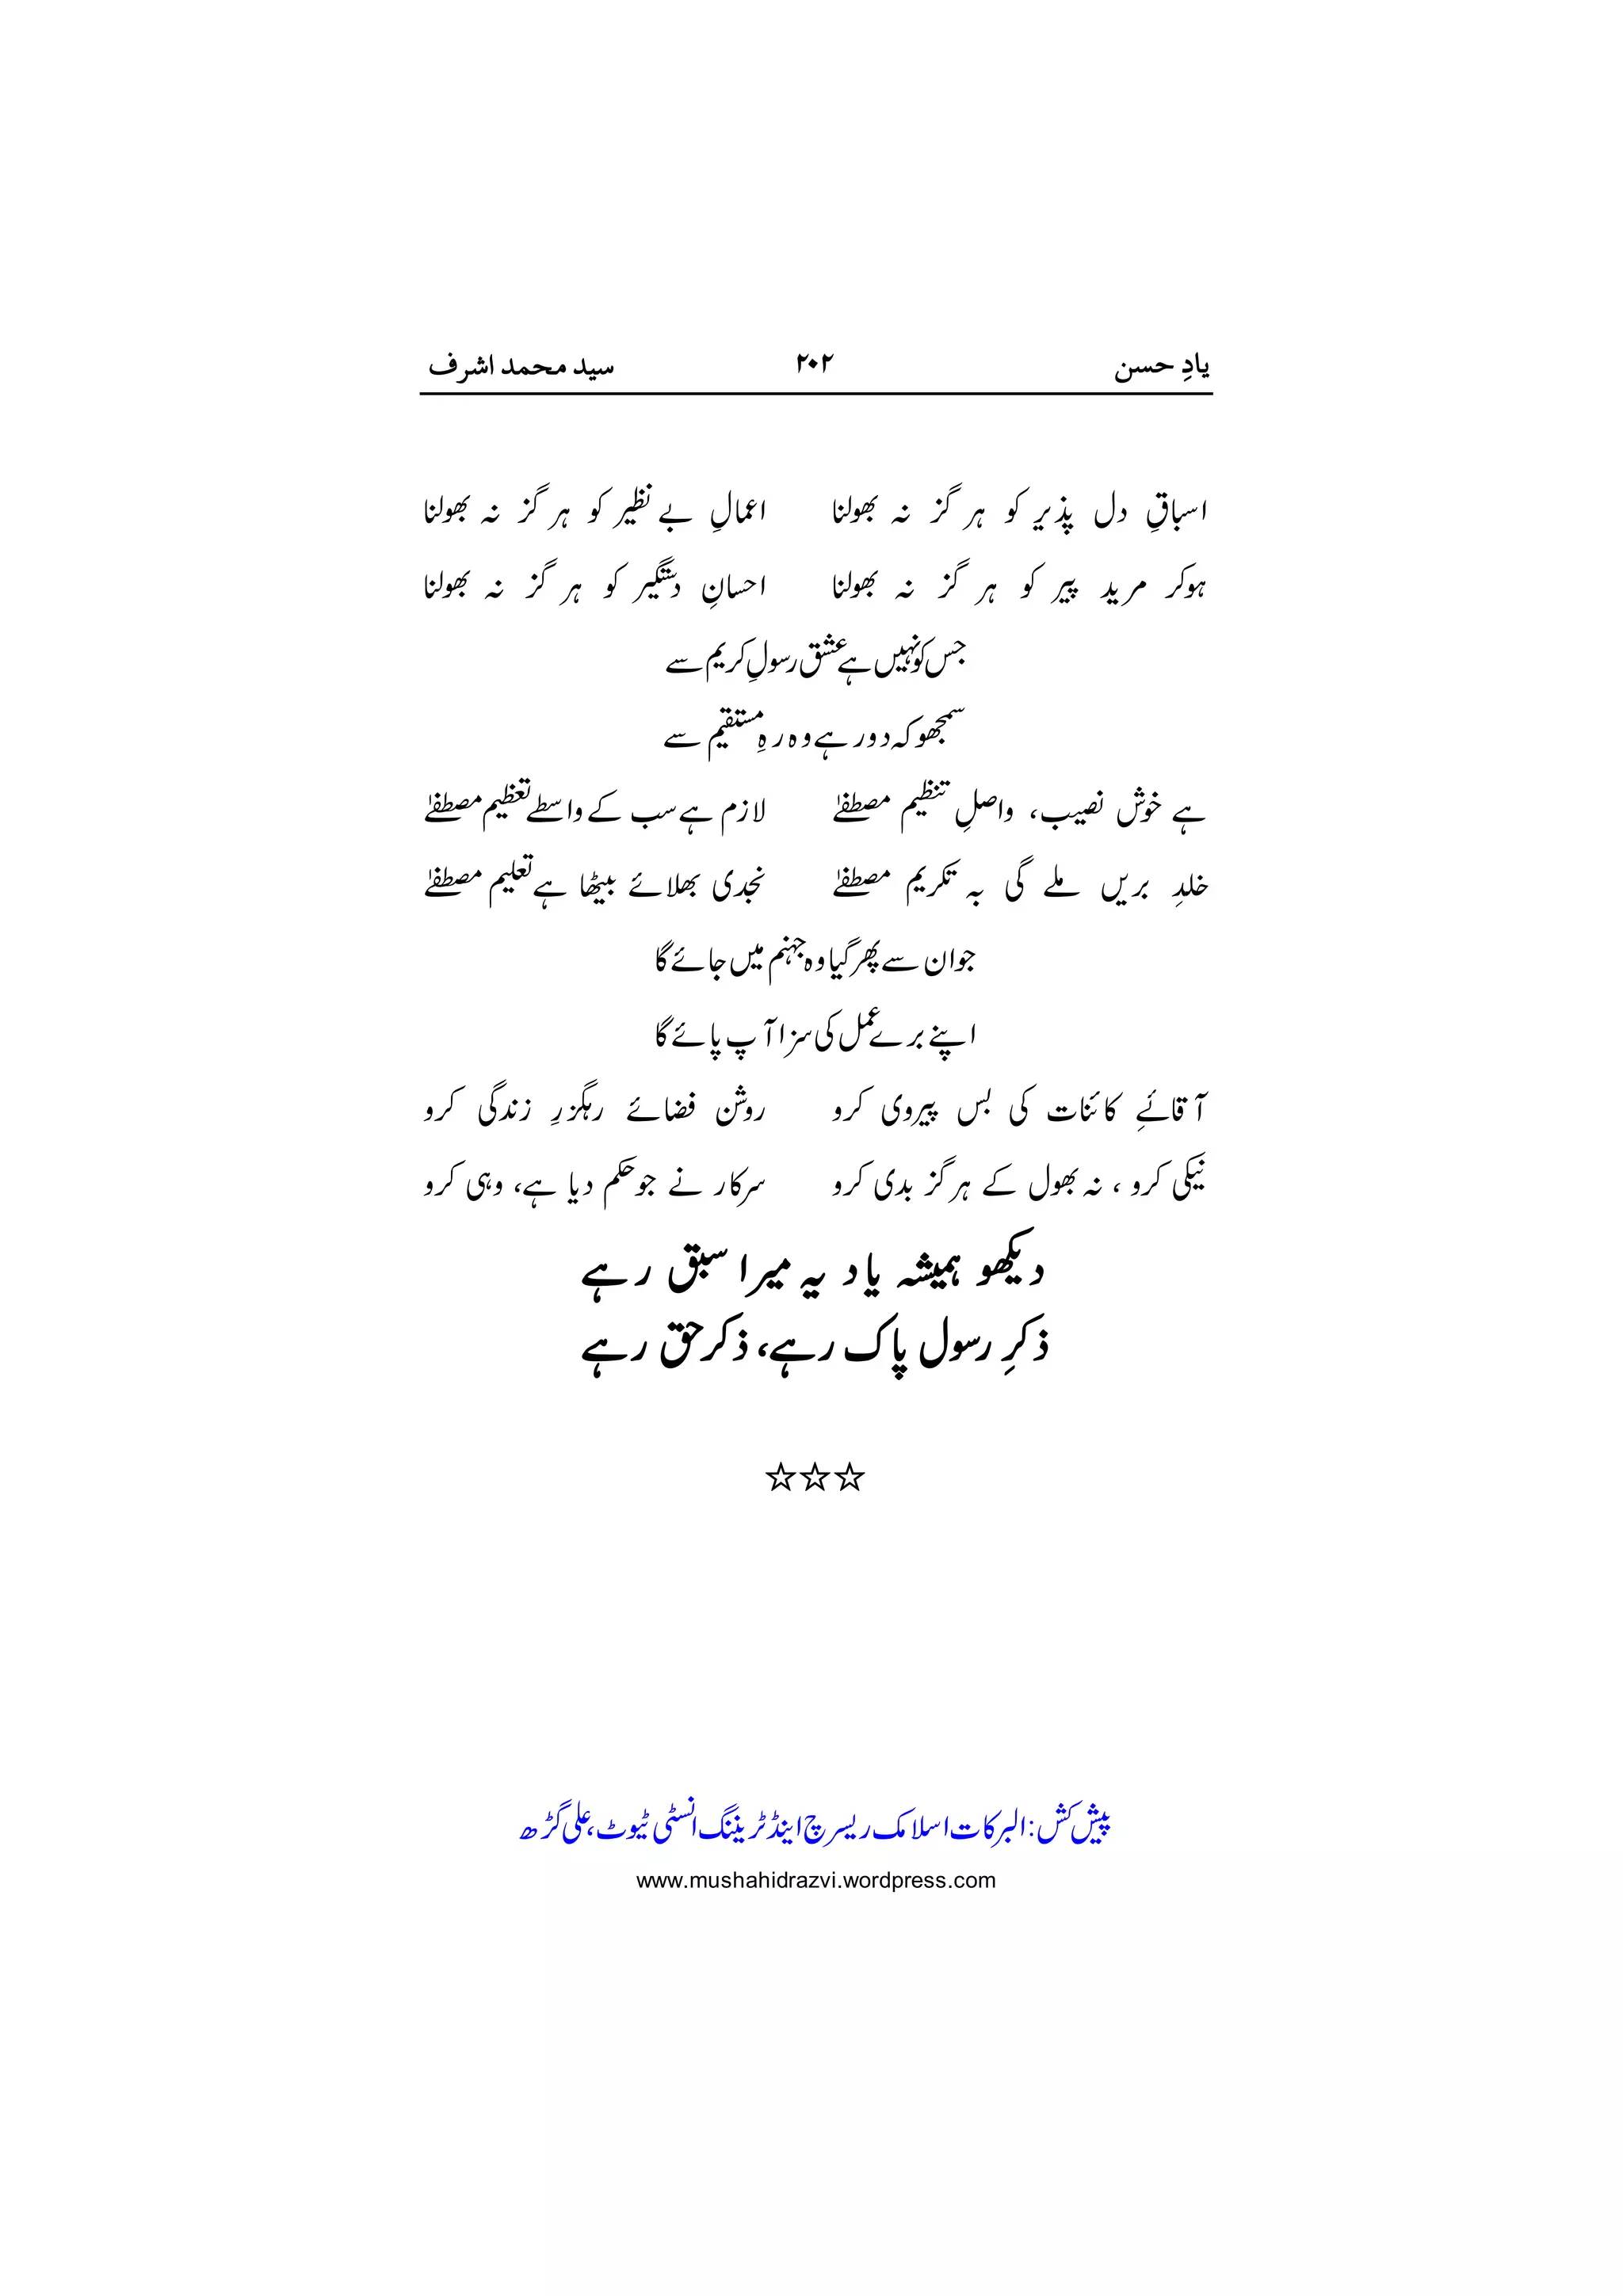 یادِ حسن ۲۰۲ سید محمد اشرف
اسباقِ دل پذیر کو ہر گز نہ بھولنا اعمالِ بے نظیر کو ہر گز نہ بھولنا
ہوکر مرید پیر کو ہر گز نہ بھولنا احسانِ دستگیر کو ہر گز نہ بھولنا
جس کو نہیں ہے عشق رسولِ کریم سے
سمجھو کہ دور ہے وہ رہِ مستقیم سے
ہے خوش نصیب، واصلِ تنظیم مصطفےٰ لازم ہے سب کے واسطے تعظیم مصطفےٰ
خلدِ بریں ملے گی بہ تکریم مصطفےٰ نجدی بھلائے بیٹھا ہے تعلیم مصطفےٰ
جو ان سے پھر گیا وہ جہنم میں جائے گا
اپنے برے عمل کی سزا آپ پائے گا
آقائےِ کائنات کی بس پیروی کرو روشن فضائے رہگزرِ زندگی کرو
نیکی کرو ، نہ بھول کے ہر گز بدی کرو سرکار نے جو حکم دیا ہے، وہی کرو
دیکھو ہمیشہ یاد یہ میرا سبق رہے
ذکرِ رسول پاک رہے، ذکر حق رہے
☆☆☆
پیش کش: البرکات اسلامک ریسرچ اینڈ ٹریننگ انسٹی ٹیوٹ، علی گڑھ
www.mushahidrazvi.wordpress.com